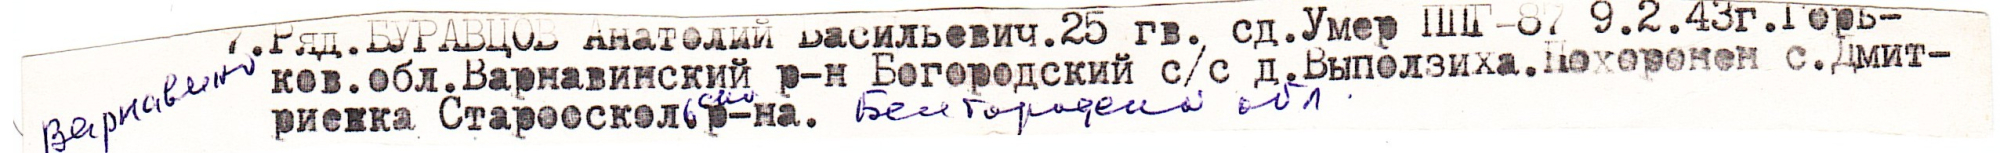 7.Ряд.БУРАВЦОВ Анатолий Васильевич.25 гв. сд.Умер ППГ-87 9.2.43г.Горь-
Варнавино
ков.обл.Варнавинский р-н Богородский с/с д.Выползиха.Похоронен с.Дмит-
риевка Старооскольско р-на. Белгородской обл.